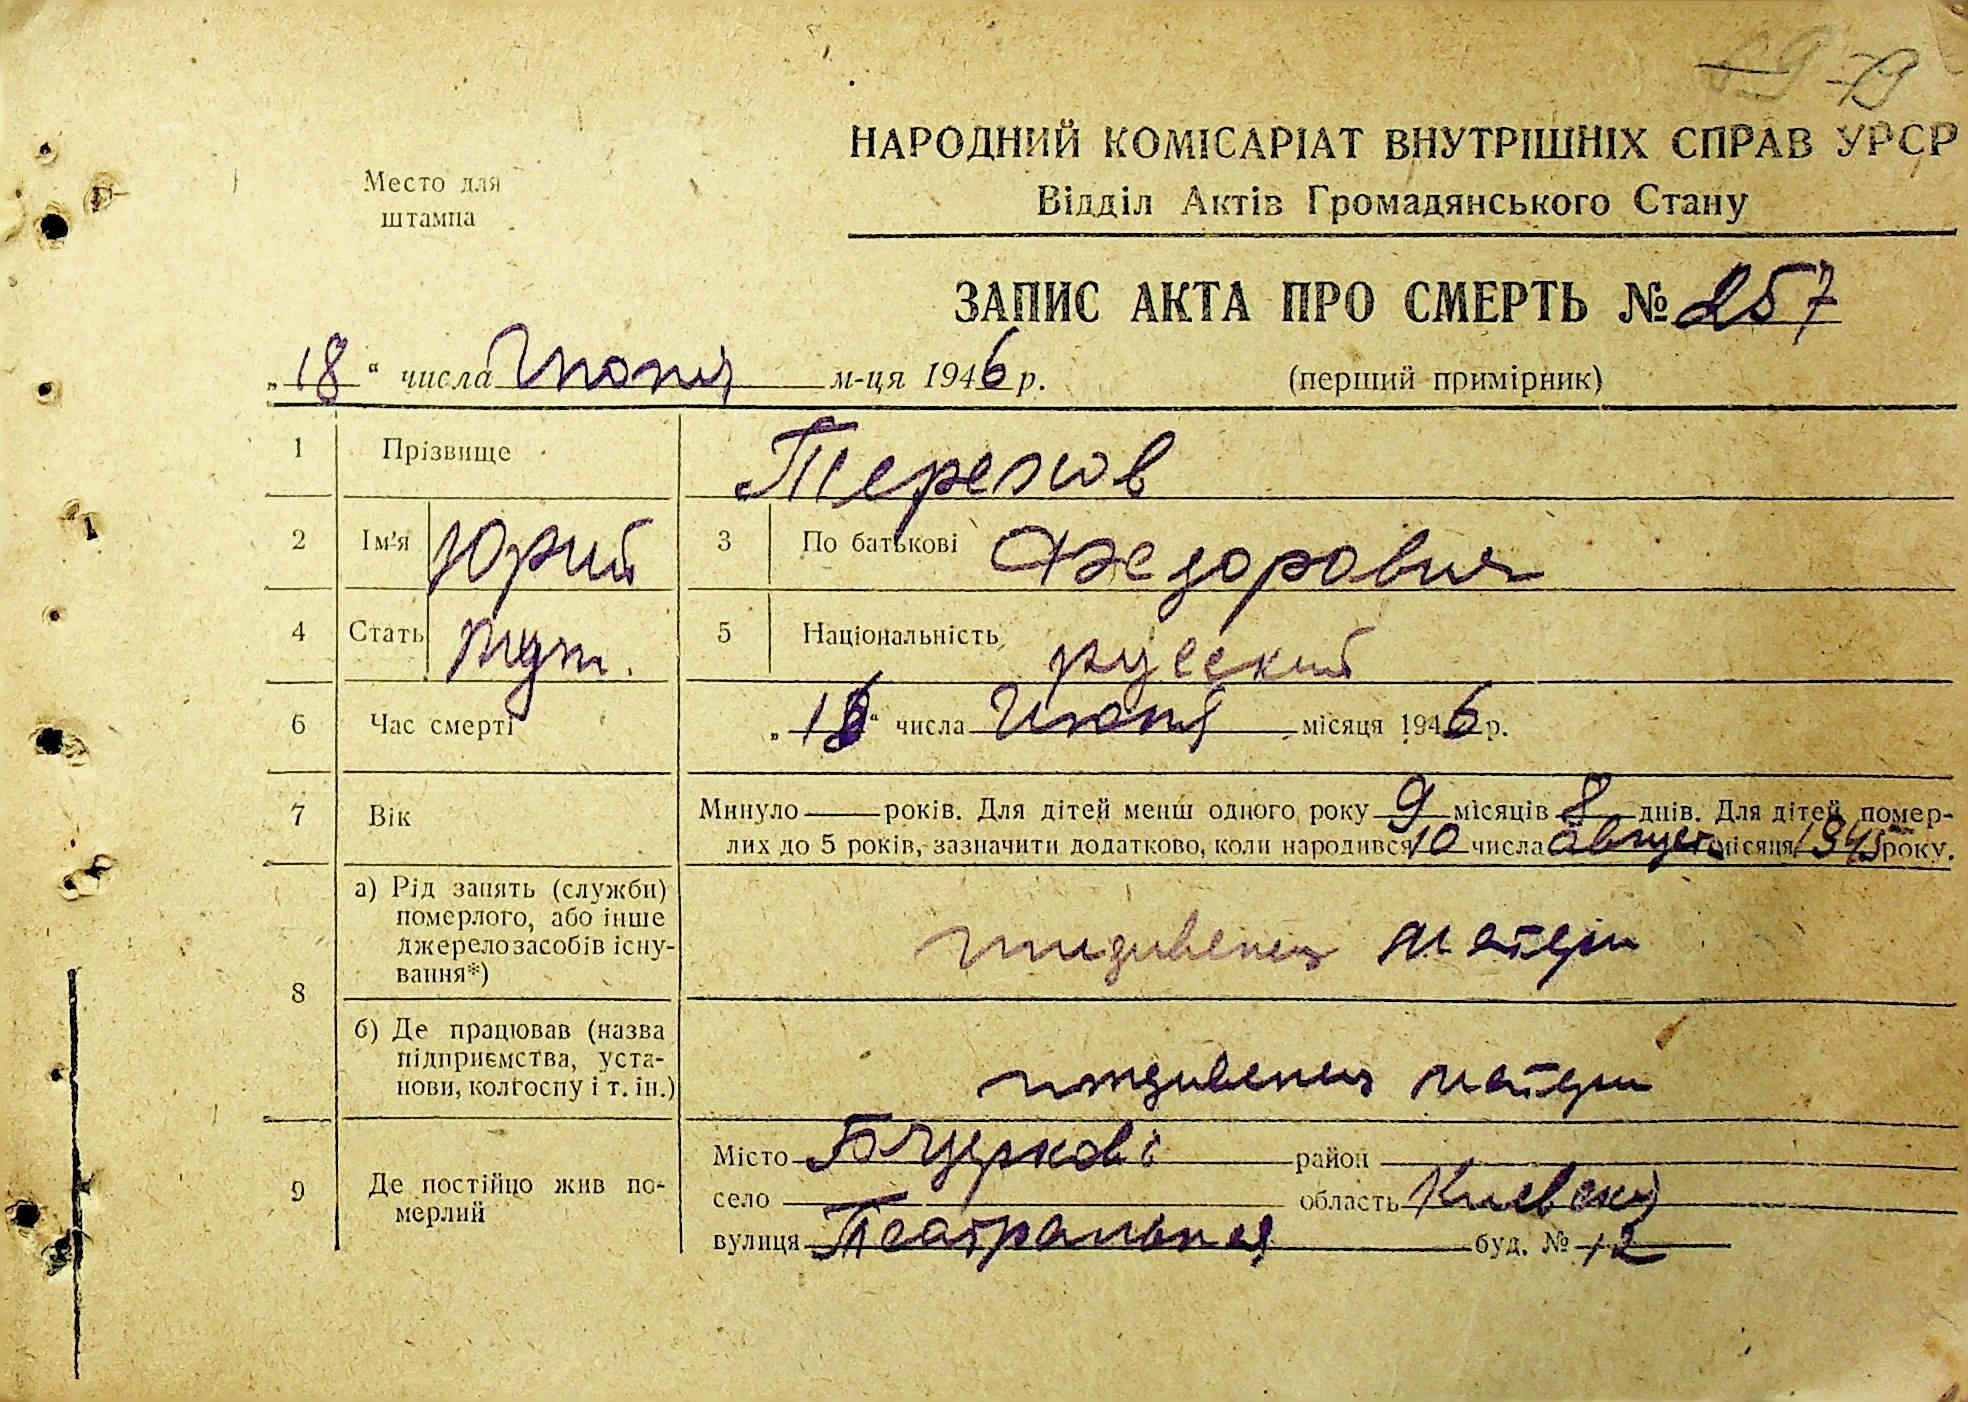 79
НАРОДНИЙ КОМІСАРІАТ ВНУТРІШНІХ СПРАВ УРСР
Відділ Актів Громадянського Стану
Место для
штампа
ЗАПИС АКТА ПРО СМЕРТЬ № 257
„18“ числа Июня м-ця 1946 р. (перший примірник)
1 Прізвище Терехов
2 Ім'я Юрий 3 По батькові Федорович
4 Стать муж. 5 Національність русский
6 Час смерті „18“ числа Июня місяця 1946 р.
7 Вік Минуло — років. Для дітей менш одного року 9 місяців 8 днів. Для дітей, помер-
лих до 5 років, зазначити додатково, коли народився 10 числа Август місяця 1945 року.
8 а) Рід занять (служби)
померлого, або інше
джерело засобів існу-
вання*) иждивенец матери
б) Де працював (назва
підприємства, уста-
нови, колгоспу і т. ін.) иждивенец матери
9 Де постійно жив по-
мерлий
Місто Б Церковь район
село область Киевская
вулиця Театральная буд. № 12